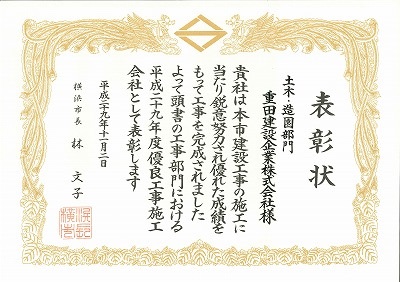 表彰状
土木・造園部門
重田建設企業株式会社様
貴社は本市建設工事の施工に
当たり鋭意努力され優れた成績を
もって工事を完成されました
よって頭書の工事部門における
平成二十九年度優良工事施工
会社として表彰します
平成二十九年十一月二日
横浜市長 林 文子